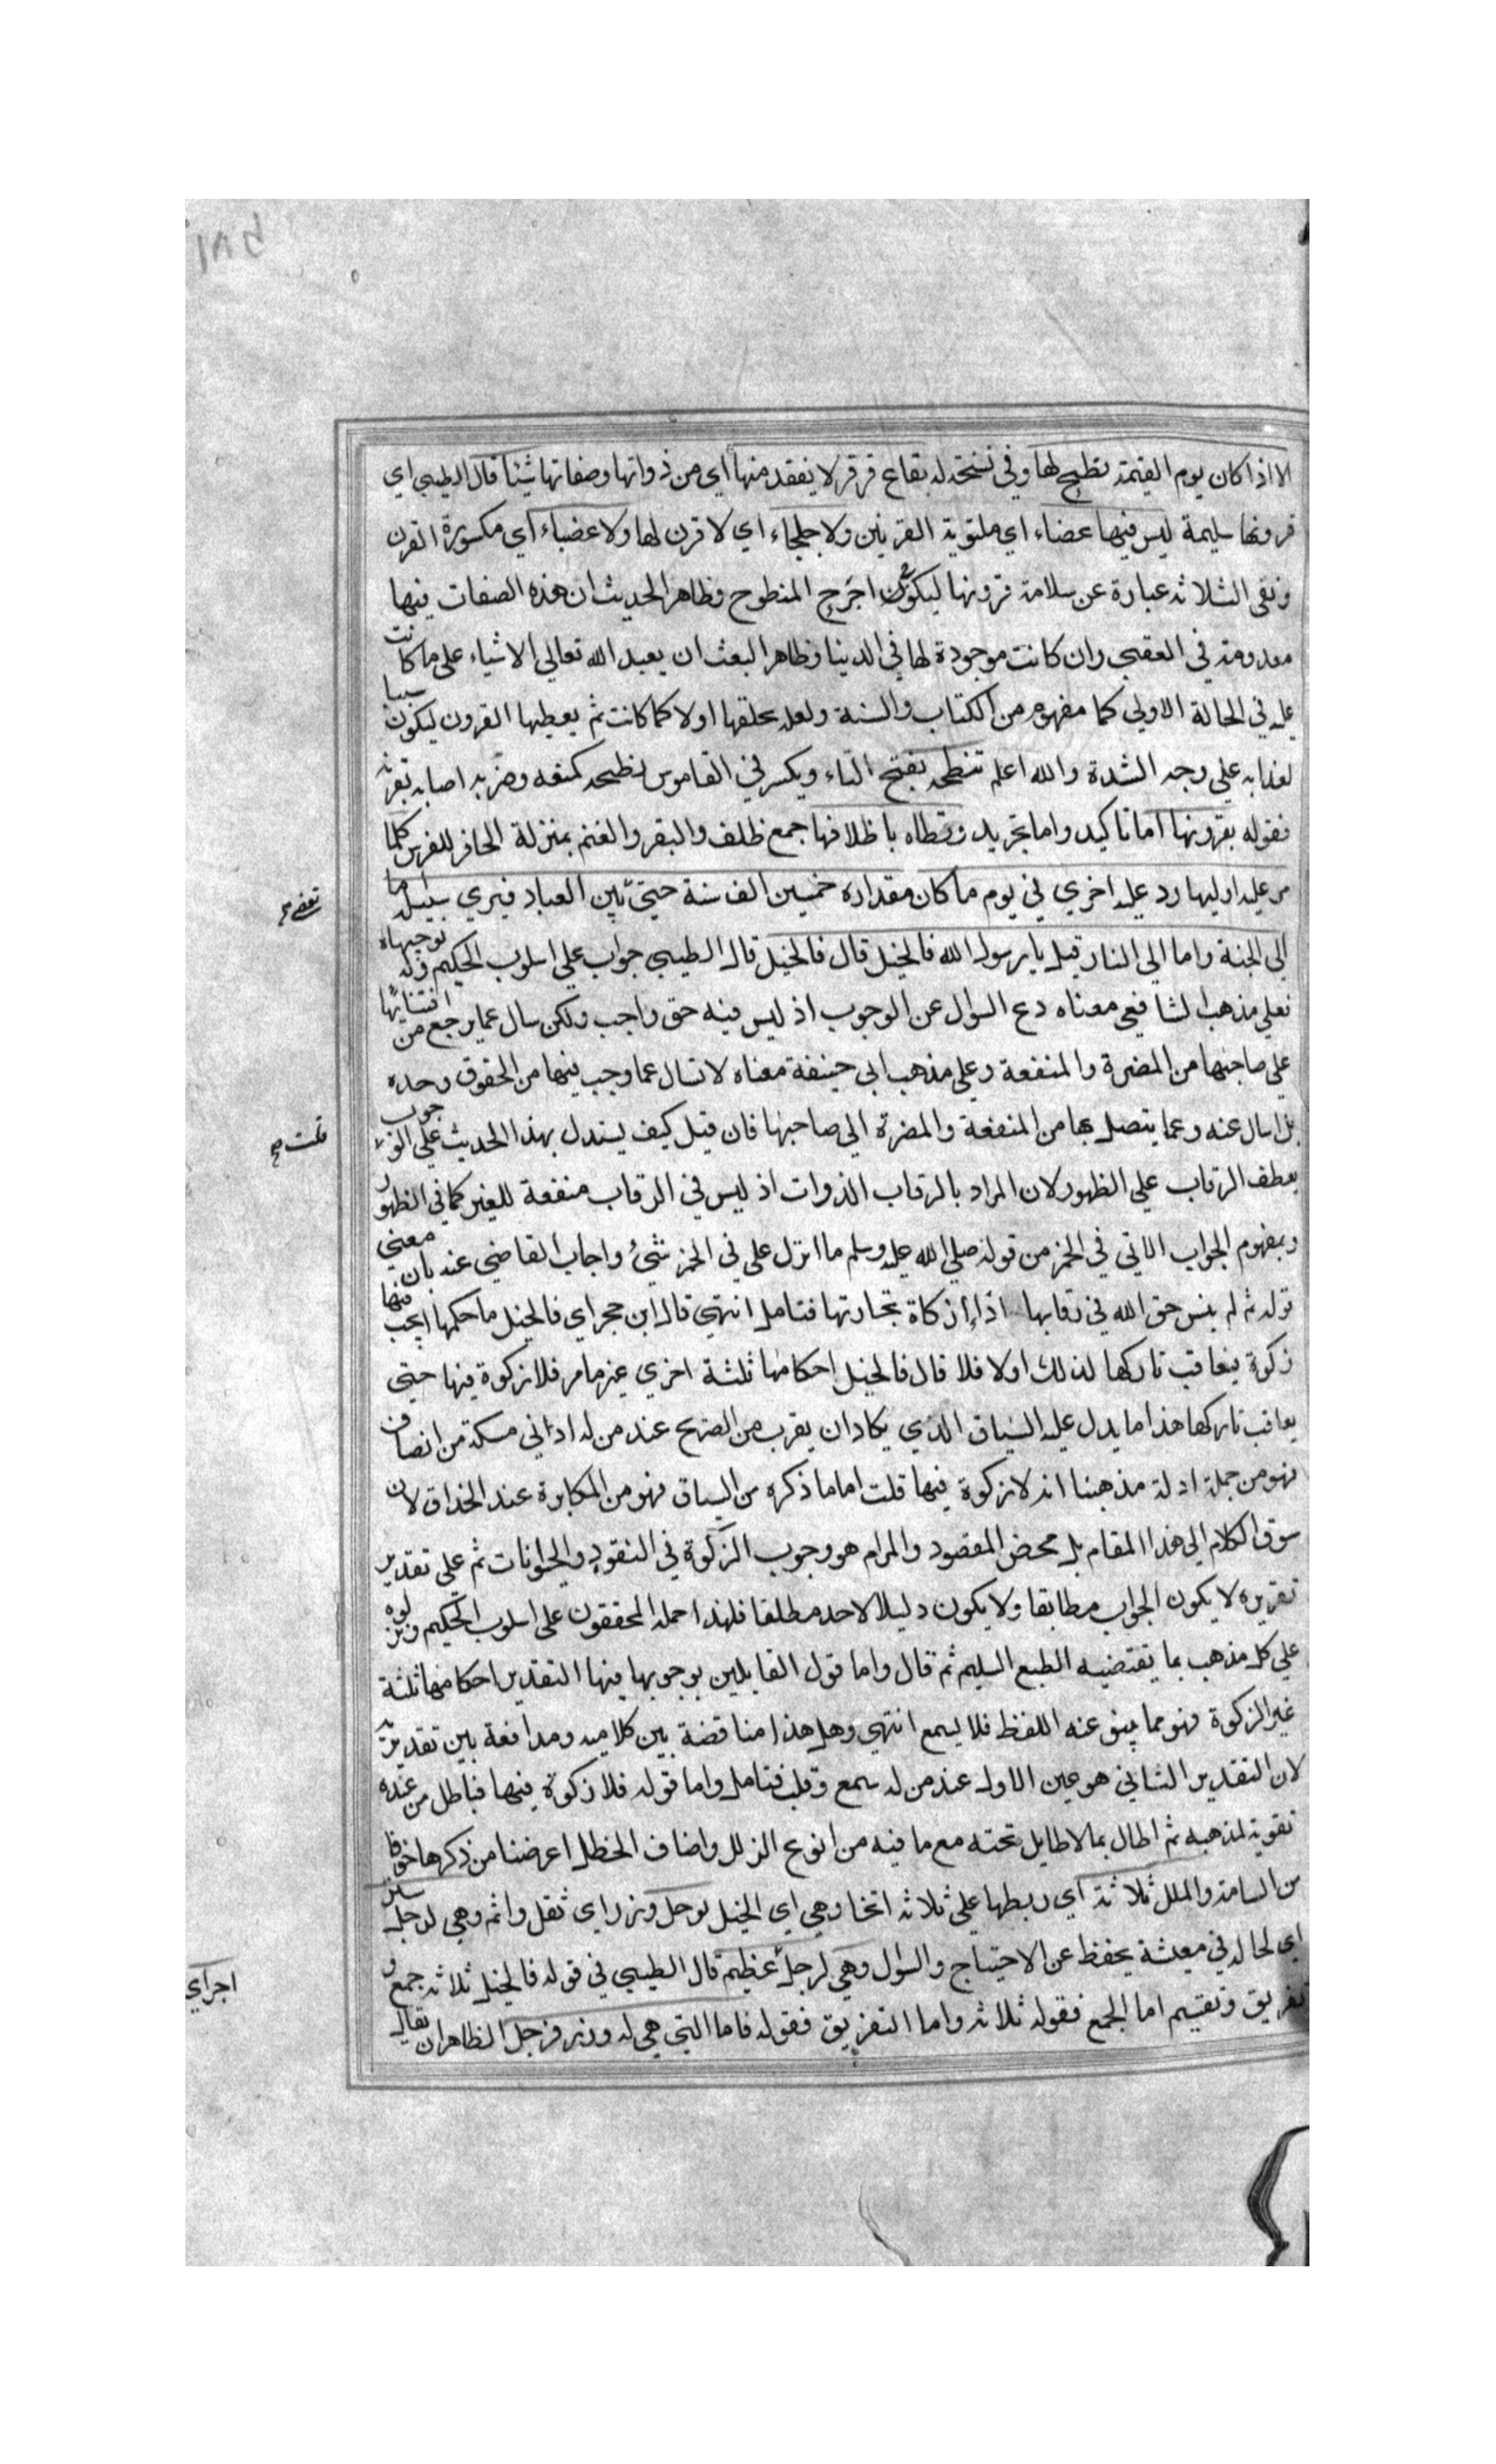 الا اذا كان يوم القيمة بطح لها وفي نسخة له بقاع قرقر لا يفقد منها اي من ذواتها وصفاتها شيئا قال الطيبي اي
قرونها سليمة ليس فيها عضاء اي ملتوية القرنين ولا جلحاء اي لا قرن لها ولا عضباء اي مكسورة القرن
ونفى الثلاثة عبارة عن سلامة قرونها ليكون اجرح المنطوح وظاهر الحديث ان هذه الصفات فيها
معدومة في العقبي وان كانت موجودة لها في الدينا وظاهر البعث ان يعيد الله تعالي الاشياء علي ما كانت
عليه في الحالة الاولي كما مفهوم من الكتاب والسنة ولعله يخلقها اولا كما كانت ثم يعطيها القرون ليكون سببا
لعذابه علي وجه الشدة والله اعلم تنطحه بفتح التاء ويكسر في القاموس نطحه كمنعه وضربه اصابه بقرنه
فقوله بقرونها اما تاكيد واما تجريد وتطاه باظلافها جمع ظلف والبقر والغنم بمنزلة الحافر للفرس كلما
مر عليه اوليها رد عليه اخري في يوم ما كان مقداره خمسين الف سنة حتي بين العباد فيري سبيله اما
يقضي صح
الي الجنة واما الي النار قيل يا رسول الله فالخيل قال فالخيل قال الطيبي جواب علي اسلوب الحكيم وله توجيهان
فعلي مذهب الشافعي معناه دع السوال عن الوجوب اذ ليس فيه حق واجب ولكن سال عما يرجع من اقتنائها
علي صاحبها من المضرة والمنفعة وعلي مذهب ابي حنيفة معناه لا تسال عما وجب فيها من الحقوق وحده
بل اسال عنه وعما يتصل بها من المنفعة والمضرة الي صاحبها فان قيل كيف يستدل بهذا الحديث علي الوجوب
قلت صح
بعطف الرقاب علي الظهور لان المراد بالرقاب الذوات اذ ليس في الرقاب منفعة للغير كما في الظهور
وبمفهوم الجواب الاتي في الحمر من قوله صلي الله عليه وسلم ما انزل علي في الحمر شيئ واجاب القاضي عنه بان معني
قوله ثم لم ينس حق الله في رقابها اداء زكاة تجارتها فتامل انتهي قال ابن حجر اي فالخيل ما حكمها ايجب فيها
زكوة فيعاقب تاركها لذلك او لا فلا قال فالخيل احكامها ثلثة اخري غير ما مر فلا زكوة فيها حتي
يعاقب تاركها هذا ما يدل عليه السياق الذي يكاد ان يقرب من الصريح عند من له اداني مسكة من انصاف
فهو من جملة ادلة مذهبنا انه لا زكوة فيها قلت اما ما ذكره من السياق فهو من المكابرة عند الحذاق لان
سوق الكلام الي هذا المقام بل محض المقصود والمرام هو وجوب الزكوة في النقود والحيوانات ثم علي تقدير
تقريره لا يكون الجواب مطابقا ولا يكون دليلا لاحد مطلقا فلهذا حمله المحققون علي اسلوب الحكيم ونزلوه
علي كل مذهب بما يقتضيه الطبع السليم ثم قال واما قول القايلين بوجوبها فيها التقدير احكامها ثلثة
غير الزكوة فهو مما ينبو عنه اللفظ فلا يسمع انتهي وهل هذا مناقضة بين كلاميه ومدافعة بين تقديريه
لان التقدير الثاني هو عين الاول عند من له سمع وقلب فتامل واما قوله فلا زكوة فيها فباطل من عنده
تقوية لمذهبه ثم اطال بما لا طايل تحته مع ما فيه من انوع الزلل واضاف الخطل اعرضنا من ذكرها خوفا
من السامة والملل ثلاثة اي ربطها علي ثلاثة انحا وهي اي الخيل لرجل وزر اي ثقل واثم وهي لرجل ستر
اي لحاله في معيشة يحفظ عن الاحتياج والسوال وهي لرجل عظيم قال الطيبي في قوله فالخيل ثلاثة جمع و
اجر اي
تفريق وتقسيم اما الجمع فقوله ثلاثة واما التفريق فقوله فاما التي هي له وزر فرجل الظاهر ان يقال